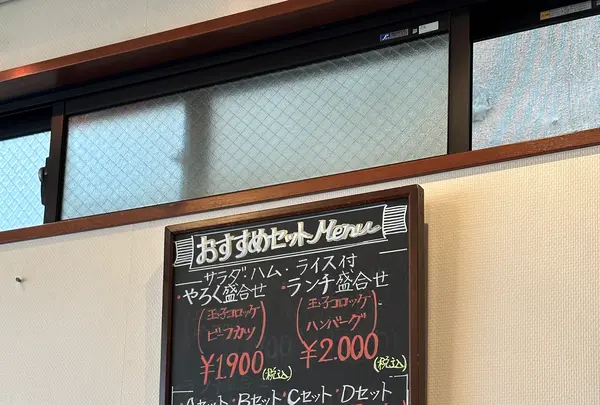 おすすめセット Menu
サラダ・ハム・ライス付
・やろく盛合せ
(玉子コロッケ
ビーフカツ)
¥1900(税込)
・ランチ盛合せ
(玉子コロッケ
ハンバーグ)
¥2.000(税込)
Aセット・Bセット・Cセット・Dセット